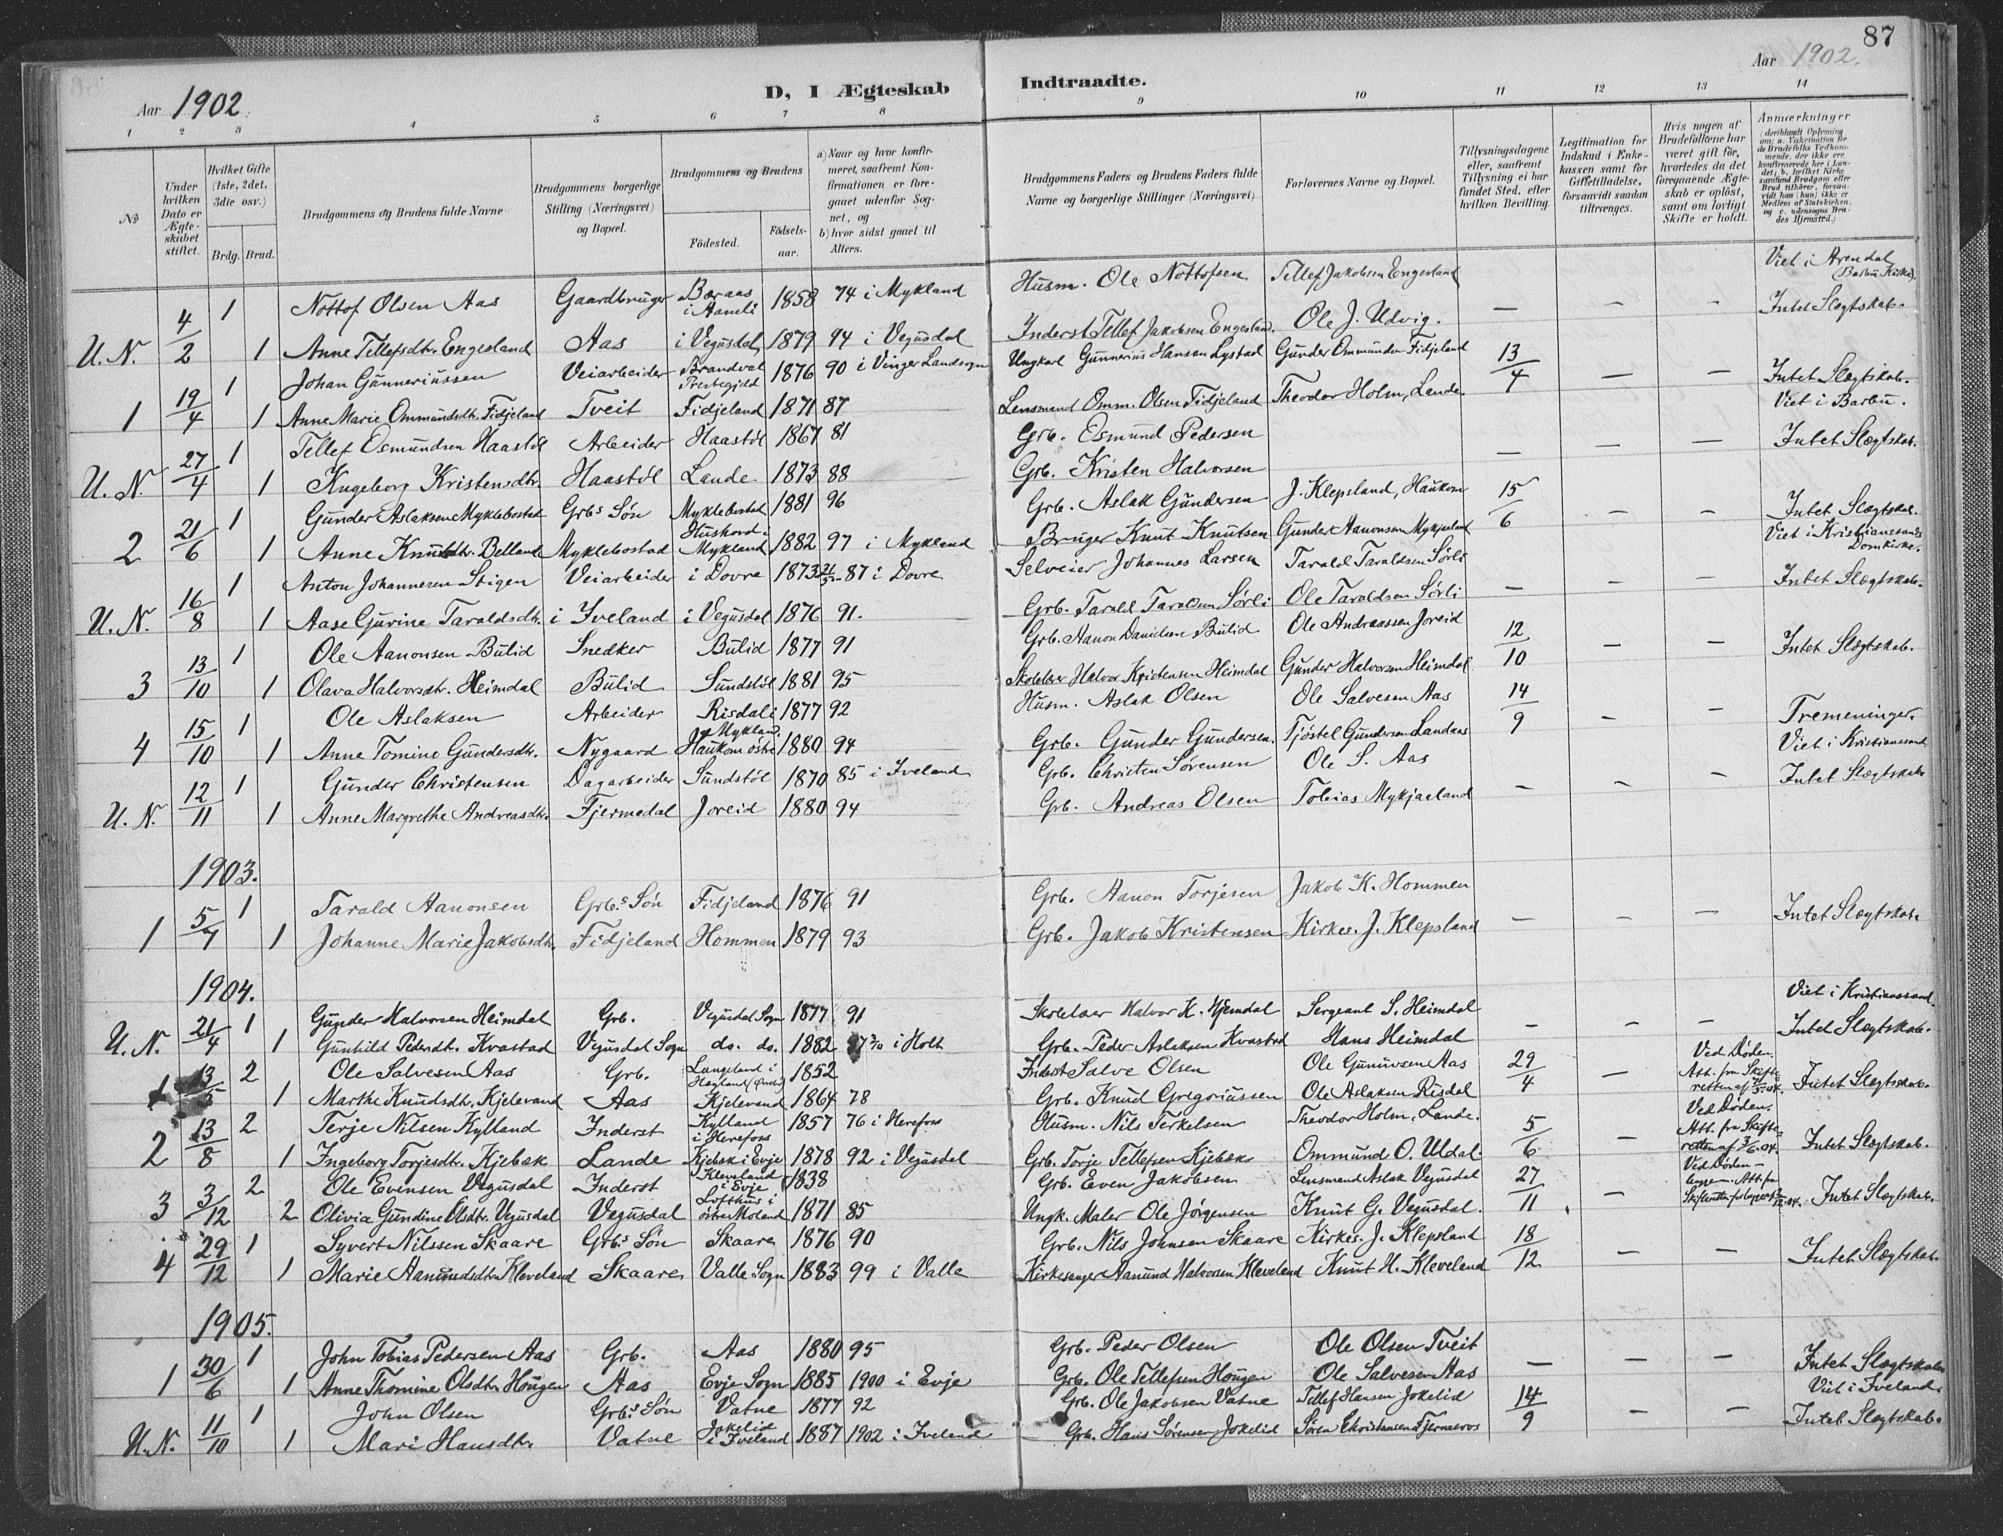 87
Aar 1902. D, I Ægteskab Indtraadte. Aar 1902.
1 2 3 4 5 6 7 8 9 10 11 12 13 14
No
Under hvilken Dato er Ægteskabet stiftet.
Hvilket Gifte (1ste, 2det, 3die osv.)
Brdg. Brud.
Brudgommens og Brudens fulde Navne
Brudgommens borgerlige Stilling (Næringsvei) og Bopæl.
Brudgommens og Brudens
Födested. Födselsaar.
a) Naar og hvor konfirmeret, saafremt Konfirmationen er foregaaet udenfor Sognet, og
b) hvor sidst gaaet til Alters.
Brudgommens Faders og Brudens Faders fulde Navne og borgerlige Stillinger (Næringsvei)
Forlovernes Navne og Bopæl.
Tillysningsdagene eller, saafremt Tillysning ei har fundet Sted, efter hvilken Bevilling.
Legitimation for Indskud i Enkekassen samt for Giftetilladelse, forsaavidt saadan tiltrænges.
Hvis nogen af Brudefolkene har været gift før, hvorledes da det foregaaende Ægteskab er oplöst, samt om lovligt Skifte er holdt.
Anmærkninger
Nottof Olsen Aas Gaardbruger Baraas i Aamli 1858 74 i Mykland Husm. Ole Nottofsen Tellef Jakobsen Engesland Viet i Arendal (Barbu Kirke).
U. N. 4/2 1 1 Anne Tellefsdtr. Engesland Aas i Vegusdal 1879 94 i Vegusdal Inderst Tellef Jakobsen Engesland. Ole J. Udvig. — — — Intet Slægtskab.
Johan Gunneriussen Veiarbeider Brandval Prestegjeld 1876 90 i Vinger Landsogn Ungkarl Gunnerius Hansen Lystad Gunder Ommundsen Fidjeland 13/4
1 19/4 1 1 Anne Marie Ommundsdtr. Fidjeland Tveit Fidjeland 1871 87 Lensmand Omm. Olsen Fidjeland Theodor Holm, Lande. — — Intet Slægtskab.
Tellef Osmundsen Haastøl Arbeider Haastøl 1867 81 Grb. Osmund Pedersen Viet i Barbu.
U. N. 27/4 1 1 Ingeborg Kristensdtr. Haastøl Lande. 1873 88 Grb. Kristen Halvorsen — — — Intet Slægtskab.
Gunder Aslaksen Myklebostad Grbs Søn Myklebostad 1881 96 Grb. Aslak Gundersen J. Klepsland, Haukom 15/6
2 21/6 1 1 Anne Knutsdtr. Belland Myklebostad Mykland 1882 97 i Mykland Bruger Knut Knutsen Gunder Aanonsen Mykjaland — — Intet Slægtskab.
Anton Johannesen Stigen Veiarbeider i Dovre 1873 87 i Dovre Selveier Johannes Larsen Tarald Taraldsen Sørli Viet i Kristianssands Domkirke.
U. N. 16/8 1 1 Aase Gurine Taraldsdtr. i Iveland i Vegusdal 1876 91. Grb. Tarald Taraldsen Sørli Ole Taraldsen Sørli — — — Intet Slægtskab.
Ole Aanonsen Bulid Snedker Bulid 1877 91 Grb. Aanon Danielsen Bulid Ole Andreassen Joreid 12/10
3 13/10 1 1 Olava Halvorsdtr. Heimdal Bulid Sundstøl 1881 95 Skolelærer Halvor Kristensen Heimdal Gunder Halvorsen Heimdal — — Intet Slægtskab.
Ole Aslaksen Arbeider Risdal i Mykland 1877 92 Husm. Aslak Olsen Ole Salvesen Aas 14/9
4 15/10 1 1 Anne Tomine Gundersdtr. Nygaard Haukom østre 1880 94 Grb. Gunder Gundersen. Tjøstel Gundersen Landaas — — Tremeninger.
Gunder Christensen Dagarbeider Sundstøl 1870 85 i Iveland Grb. Christen Sørensen Ole S. Aas Viet i Kristianssand
U. N. 12/11 1 1 Anne Margrethe Andreasdtr. Fjermedal Joreid 1880 94 Grb. Andreas Olsen Tobias Mykjaeland — — — Intet Slægtskab
1903.
Tarald Aanonsen Grbs Søn Fidjeland 1876 91 Grb. Aanon Torjesen Jakob K. Hommen
1 5/7 1 1 Johanne Marie Jakobsdtr. Fidjeland Hommen 1879 93 Grb. Jakob Kristensen Kirkes. J. Klepsland — — — Intet Slægtskab.
1904.
Gunder Halvorsen Heimdal Grb. Vegusdal Sogn 1877 91 Skolelærer Halvor K. Hejmdal Sergeant S. Heimdal Viet i Kristianssand.
U. N. 21/4 1 1 Gunhild Pedersdtr. Kvastad Vegusdal Sogn do. do. 1882 i Holt Grb. Peder Aslaksen Kvastad Hans Heimdal — — — Intet Slægtskab.
Ole Salvesen Aas Grb. Langeland i 1852 Inderst Salve Olsen Ole Gunuvsen Aas 29/4 Ved Døden.
1 13/5 2 1 Marthe Knudsdtr. Kjelevand Aas Kjelevand 1864 78 Grb. Knud Gregoriussen Ole Aslaksen Risdal — Att. fra Skifteretten af Intet Slægtskab.
Terje Nilsen Kylland Inderst Kylland i Herefoss 1857 76 i Herefoss Husm. Nils Terkelsen Theodor Holm, Lande. 5/6 Ved Døden.
2 13/8 2 1 Ingeborg Torjesdtr. Kjebæk Lande Kjebæk i Evje 1878 92 i Vegusdal Grb. Torje Tellefsen Kjebæk Ommund O. Uldal — Att. fra Skifteretten af 3/6.04. Intet Slægtskab.
Ole Evensen Vegusdal Inderst Kleveland i Evje 1838 Grb. Even Jakobsen Lensmand Aslak Vegusdal 27/11 Ved Døden —
3 3/12 2 2 Olivia Gundine Olsdtr. Vegusdal Vegusdal Lofthus i østre Moland 1871 85 Ungk. Maler Ole Jørgensen Knut G. Vegusdal. — Intet Slægtskab.
Syvert Nilssen Skaare Grbs Søn Skaare 1876 90 Grb. Nils Johnsen Skaare Kirkes. J. Klepsland 18/12
4 29/12 1 1 Marie Aanundsdtr. Kleveland Skaare Valle Sogn 1883 99 i Valle Kirkesanger Aanund Halvorsen Kleveland Knut H. Kleveland — — Intet Slægtskab.
1905.
John Tobias Pedersen Aas Grb. Aas 1880 95 Grb. Peder Olsen Ole Olsen Tveit
1 30/6 1 1 Anne Thomine Olsdtr. Hougen Aas Evje Sogn 1885 1900 i Evje Grb. Ole Tellefsen Hougen Ole Salvesen Aas — — — Intet Slægtskab
John Olsen Grbs Søn Vatne 1877 92 Grb. Ole Jakobsen Vatne Tellef Hansen Jokelid 14/9 Viet i Iveland.
U. N. 11/10 1 1 Mari Hansdtr. Vatne Jokelid i Iveland 1887 1902 i Iveland Grb. Hans Sørensen Jokelid Søren Christiansen Fjermeros — — Intet Slægtskab.